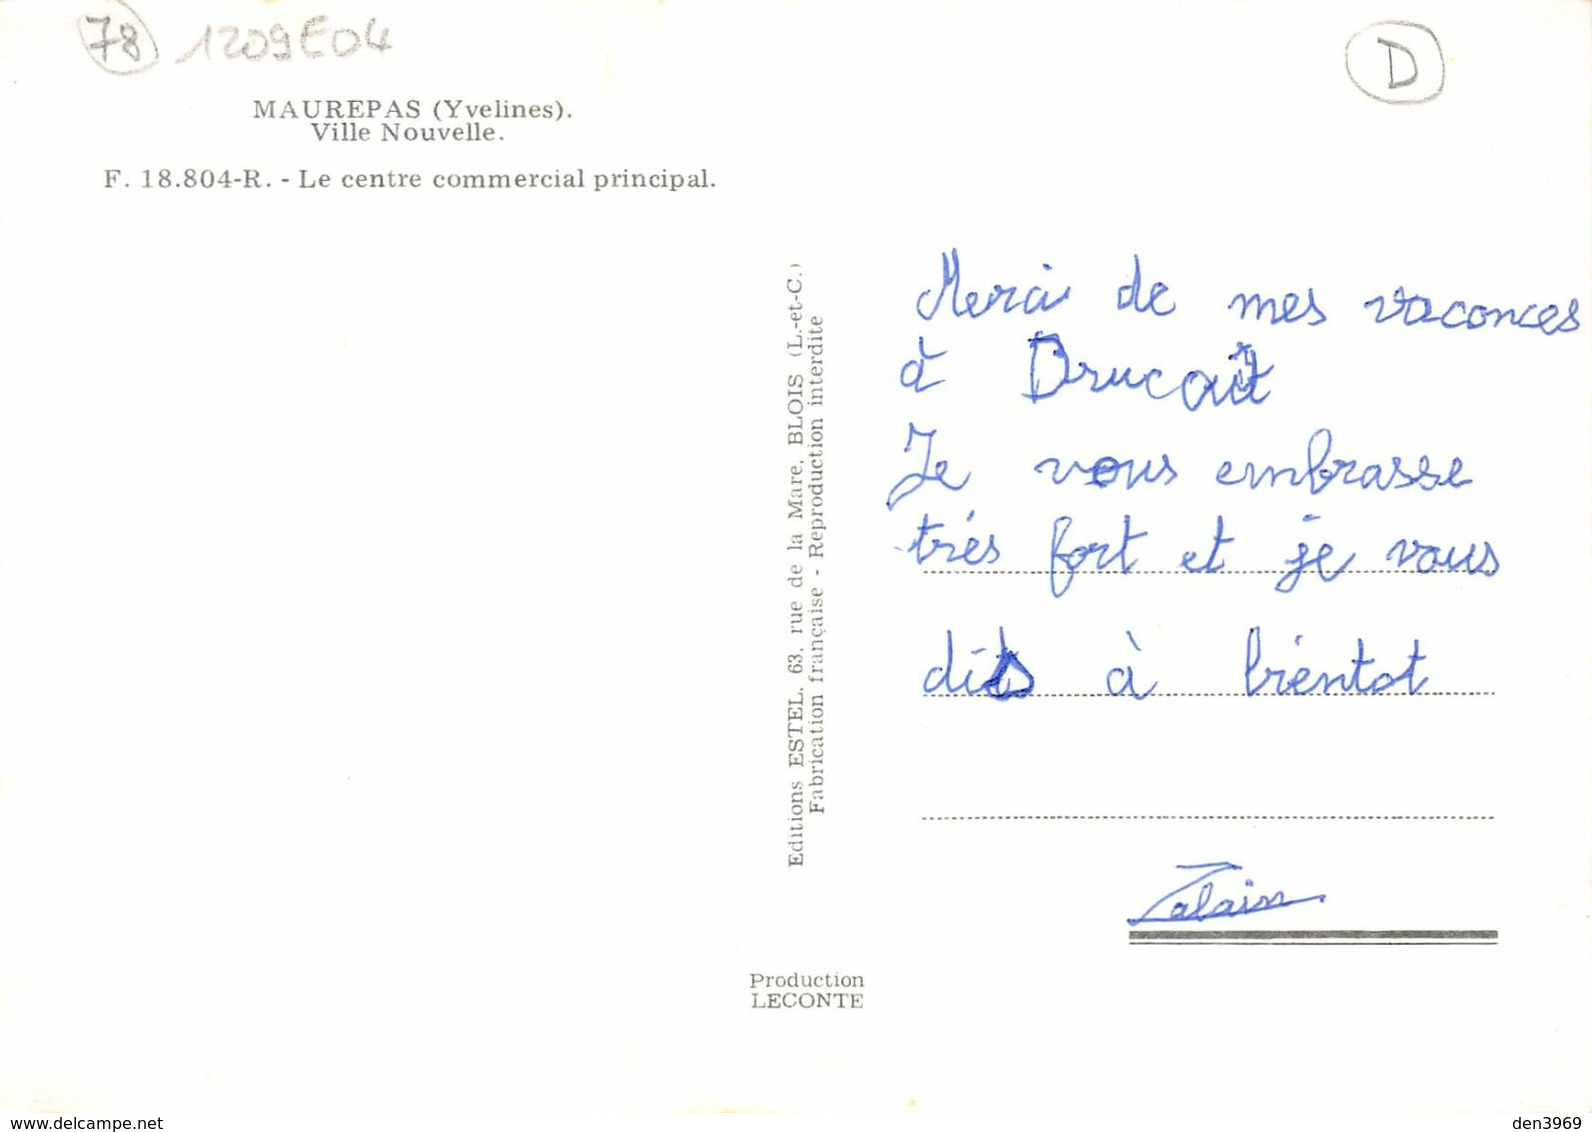 78 1209E04
D
MAUREPAS (Yvelines).
Ville Nouvelle.
F. 18.804-R. - Le centre commercial principal.
Editions ESTEL, 63, rue de la Mare, BLOIS (L.-et-C.)
Fabrication française - Reproduction interdite
Merci de mes vaconces
à Drucaït
Je vous embrasse
très fort et je vous
dits à bientot
alain
Production
LECONTE
www.delcampe.net
den3969